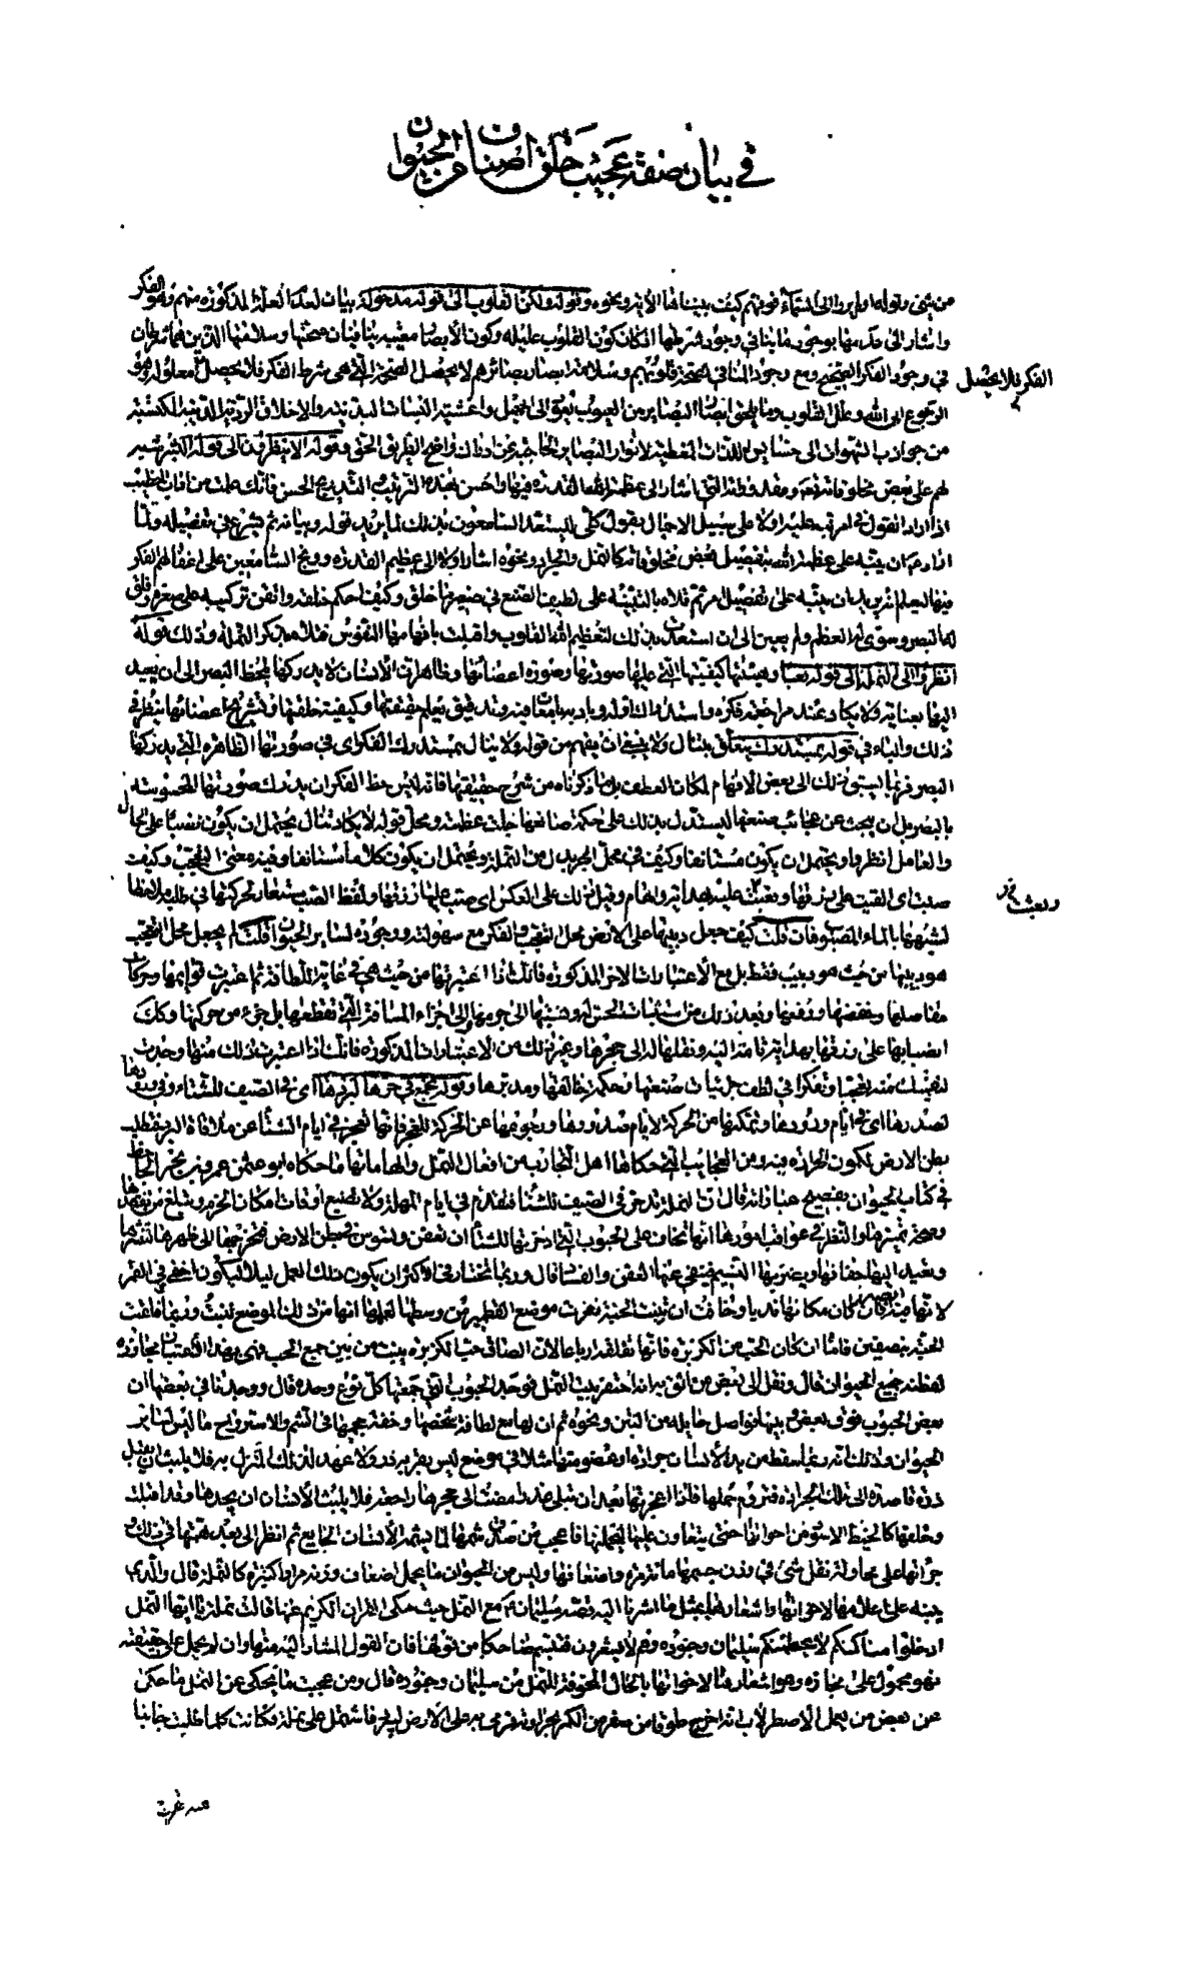 في بيان صفة عجيب خلق أصناف من الحيوان
من شئ وقوله اولم يروا الى السماء فوقهم كيف بنيناها الآية ونحوه وقوله ولكن القلوب الى قوله مدخولة بيان لعدا العلة المذكورة منهم وهو الفكر
واشار الى عدمها بوجود ما ينافي وجود شرطها اذ كان كون القلوب عليلة وكون الأبصار معيبة ينافيان صحتها وسلامتها الذين هما شرطان
في وجود الفكر الصحيح ومع وجود المنافي لصحة قلوبهم وسلامة ابصار بصائرهم لا يحصل الصحة التي هي شرط الفكر فلا يحصل معلوله وهو
الفكر فلا يحصل
الرجوع الى الله وعلل القلوب وما يلحق ابصار البصائر من العيوب يعود الى الجهل واغشية الهيئات البدنية والاخلاق الردية المكتسبة
من جواذب الشهوات الى خسايس اللذات المغطية لانوار البصائر الحاجبة عن ادراك واضح الطريق الحق وقوله الا ينظرون الى قوله البشر تنبيه
لهم على بعض مخلوقاته ومقدوراته التي اشار الى عظمة الله القدرة فيها واحسن بهذا الترتيب التدريج الحسن فانك علمت من آداب الخطيب
اذا اراد القول في امر نبه عليه اولا على سبيل الاجمال بقول كلي ليستعد السامعون بذلك لما يريد قوله وبيانه ثم يشرع في تفصيله ولما
اراد ان ينبه على عظمة الله بتفصيل بعض مخلوقاته كالنملة والجراد ونحوه اشار اولا الى عظيم القدرة ووبخ السامعين على اغفالهم الفكر
فيها ليعلم انه يريد ان ينبه على تفصيل امر ثم تلاه بالتنبيه على لطيف الصنع في صغير ما خلق وكيف احكم خلقه واتقن تركيبه على صغره وفلق
له البصر وسوى له العظم ولم يعين الى ان استعدت بذلك لتعظيم الله القلوب واقبلت بافهامها النفوس فتلاه بذكر النملة وذلك قوله
انظروا الى النملة الى قوله تعبا وهيئتها كيفيتها التي عليها صورتها وصورة اعضائها وظاهر ان الانسان لا يدركها بلحظ البصر الى ان يعيد
اليها بعناية ولا يكاد عند مراجعة فكره واستدراك اوله وبادية امعان ودقيق يعلم حقيقتها وكيفية خلقها وتشريح اعضائها ينظر في
ذلك والباء في قوله بمستدرك يتعلق بتنال ولا ينبغي ان يفهم من قوله ولا ينال بمستدرك الفكر اي في صورتها الظاهرة التي يدركها
البصر فربما يسبق ذلك الى بعض الافهام لمكان العطف بل ما ذكرناه من شرح حقيقتها فانه ليس حظ الفكر ان يدرك صورتها المحسوسة
بالبصر بل ان يبحث عن عجائب صنعها ليستدل بذلك على حكمة صانعها جلت عظمته ومحل قوله لا يكاد تنال يحتمل ان يكون نصبا على الحال
والعامل انظروا ويحتمل ان يكون مستانفا وكيف في محل الجر بدل من النملة ويحتمل ان يكون كلاما مستانفا وفيه معنى التعجب وكيفت
صبت اى القيت على رزقها وبعثت عليه بهداية والهام وقيل ذلك على العكس اى صب عليها رزقها ولفظ الصب مستعار لحركتها في طلبه ملاحظا
وبعثت
لشبهها بالماء المصبوب فان قلت كيف جعل دبيبها على الارض محل التعجب والفكر مع سهولته ووجوده لساير الحيوان قلت لم يجعل محل التعجب
هو دبيبها من حيث هو دبيب فقط بل مع الاعتبارات الاخر المذكورة فانك اذا اعتبرتها من حيث هي في غاية اللطافة ثم اعتبرت قوائمها وحركات
مفاصلها وخفضها ورفعها وبعد ذلك من استثبات الحس له ونسبتها الى جرمها والى اجزاء المسافة التي تقطعها بل جزء من حركتها وكذلك
انصبابها على رزقها بهداية تامة اليه ونقلها له الى جحرها وغير ذلك من الاعتبارات المذكورة فانك اذا اعتبرت ذلك منها وجدت
لنفسك منه تعجبا وتفكرا في لطف جزئيات صنعتها وحكمة خالقها ومدبرها وقوله تجمع في حرها لبردها اى في الصيف للشتاء وفي ورودها
لصدرها اى في ايام ورودها وتمكنها من الحركة لايام صدورها ورجوعها عن الحركة للعجز فانها تعجز في ايام الشتاء عن ملاقاة البرد فتطلب
بطن الارض لكمون الحرارة فيه ومن العجايب التي حكاها اهل التجارب من افعال النمل والهاماتها ما حكاه ابو عثمن عمرو بن بحر الجاحظ
في كتاب الحيوان بفصيح عباراته قال ان النملة تدخر في الصيف للشتاء فتقدم في ايام المهلة ولا تضيع اوقات امكان الحزم وتبلغ من تفقدها
وصحة تمييزها والنظر في عواقب امورها انها تخاف على الحبوب التي ادخرتها للشتاء ان تعفن وتسوس في بطن الارض فتخرجها الى ظهرها لتنشرها
وتعيد اليها جفافها ويضربها النسيم فينفي عنها العفن والفساد قال وربما تختار في الاكثر ان يكون ذلك العمل ليلا ليكون اخفى وفي القمر
لانها فيه ابصر فان كان مكانها نديا وخافت ان تنبت الحبة نقرت موضع القطمير من وسطها لعلمها انها من ذلك الموضع تنبت وربما فلقت
الحبة نصفين فاما ان كان الحب من الكزبرة فانها تفلقه ارباعا لان انصاف حب الكزبرة ينبت من بين جميع الحب فهي بهذا الاعتبار مجاوزة
لفطنة جميع الحيوان قال ونقل الي بعض من اثق به انه احتفر بيت النمل فوجد الحبوب التي جمعتها كل نوع وحده قال ووجدنا في بعضها ان
بعض الحبوب فوق بعض وبينها فواصل حايلة من التبن ونحوه ثم ان لها مع لطافة شخصها وخفة حجمها في الشم والاسترواح ما ليس لساير
الحيوان وذلك انه ربما سقط من يد الانسان جرادة او عضو منها مثلا في موضع ليس بقربه ذر ولا عهد لذلك المنزل به فلا يلبث ان يقبل
ذرة قاصدة الى تلك الجرادة فتروم حملها فاذا اعجزتها بعد ان تبلى عذرا مضت الى جحرها راجعة فلا يلبث الانسان ان يجدها وقد اقبلت
وخلفها كالخيط الاسود من اخواتها حتى يتعاون عليها فيحملنها فاعجب من صدق شمها لما لا يشمه الانسان الجايع ثم انظر الى بعد همتها وفي ذلك
جراتها على محاولة نقل شئ في وزن جسمها مائة مرة واضعافها وليس من الحيوان ما يحمل اضعاف وزنه مرارا كثيرة كالنملة قال والذي
ينبه على اعلامها لاخواتها واشعارها بمثل ما اشرنا اليه قصة سليمان مع النمل حيث حكى القران الكريم عنها قالت نملة يا ايها النمل
ادخلوا مساكنكم لا يحطمنكم سليمان وجنوده وهم لا يشعرون فتبسم ضاحكا من قولها فان القول المشار اليه منها وان لم يحمل على حقيقته
فهو محمول على مجازه وهو اشعارها لاخواتها بالحال المخوفة للنمل من سليمان وجنوده قال ومن عجيب ما يحكى عن النمل ما حكى
عن بعض من يعمل الاصطرلاب انه اخرج طوقا من صفر من الكير بحرارته فرمى به على الارض ليبرد فاشتمل على نملة فكانت كلما طلبت جانبا
منه